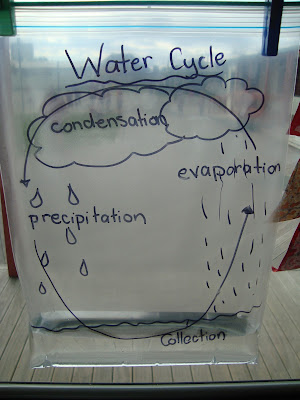 Water Cycle
condensation
evaporation
precipitation
Collection